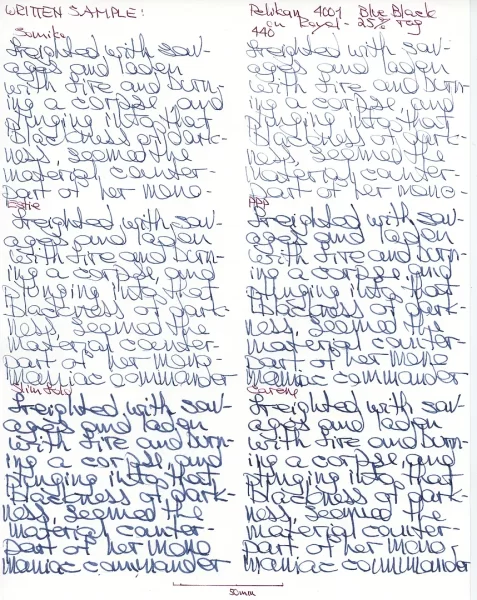 WRITTEN SAMPLE:
Pelikan 4001 Blue Black
on Royal - 25% reg
Somiko
freighted with sav-
ages and laden
with fire and burn-
ing a corpse, and
plunging into that
blackness of dark-
ness, seemed the
material counter-
part of her mono-
440
freighted with sav-
ages and laden
with fire and burn-
ing a corpse, and
plunging into that
blackness of dark-
ness, seemed the
material counter-
part of her mono-
Estie
freighted with sav-
ages and laden
with fire and burn-
ing a corpse, and
plunging into that
blackness of dark-
ness, seemed the
material counter-
part of her mono-
maniac commander
PPP
freighted with sav-
ages and laden
with fire and burn-
ing a corpse, and
plunging into that
blackness of dark-
ness, seemed the
material counter-
part of her mono
maniac commander
Slimfold
freighted with sav-
ages and laden
with fire and burn-
ing a corpse, and
plunging into that
blackness of dark-
ness, seemed the
material counter-
part of her mono
maniac commander
Carene
freighted with sav-
ages and laden
with fire and burn-
ing a corpse, and
plunging into that
blackness of dark-
ness, seemed the
material counter-
part of her mono
maniac commander
50mm